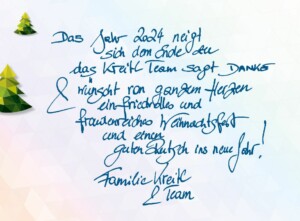 Das Jahr 2024 neigt
sich dem Ende zu
das Kreitl Team sagt DANKE
& wünscht von ganzem Herzen
ein friedvolles und
freudenreiches Weihnachtsfest
und einen
guten Rutsch ins neue Jahr!
Familie Kreitl
& Team